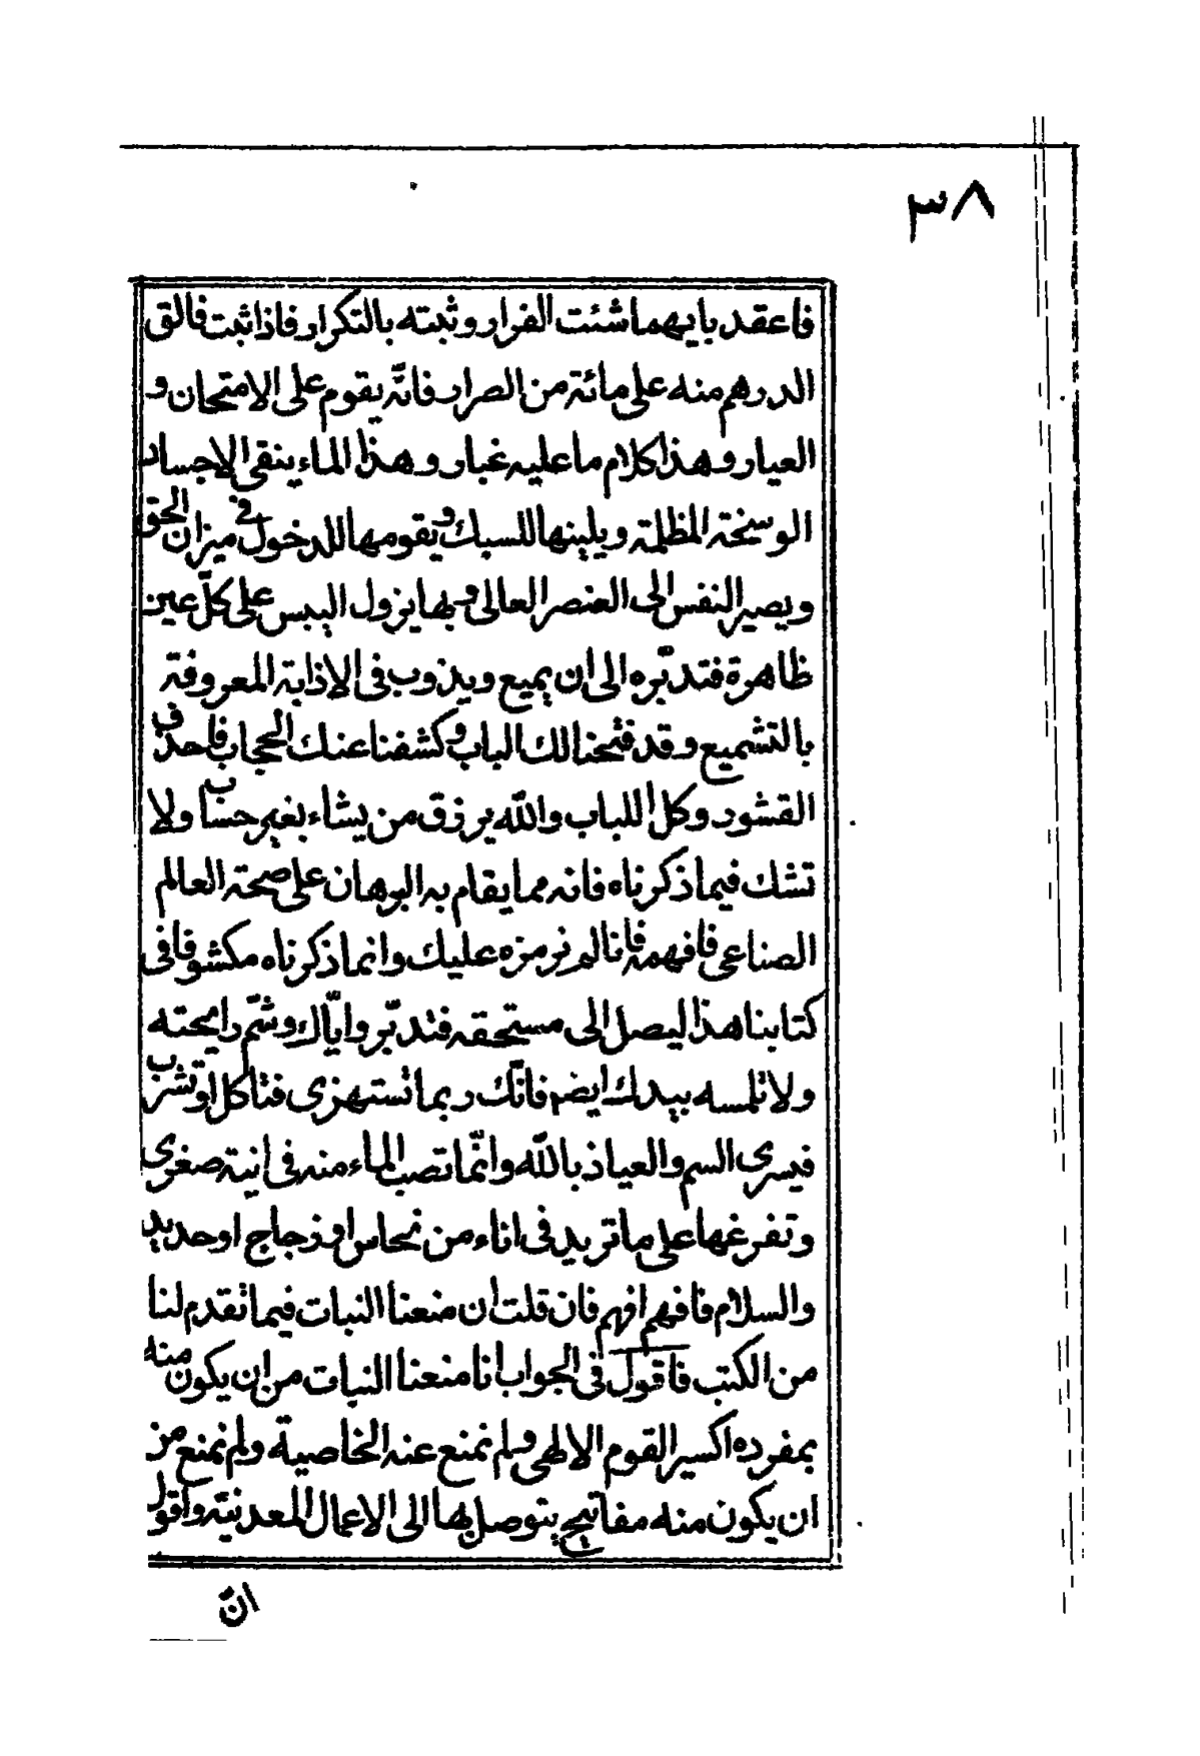 ٣٨
فاعقد بايهما شئت الفرار وثبته بالتكرار فاذا ثبت فالق
الدرهم منه على مائة من الصرار فانّه يقوم على الامتحان و
العيار وهذا كلام ما عليه غبار وهذا الماء ينقى الاجساد
الوسخة المظلمة ويلينها للسبك ويقومها للدخول فى ميزان الحق
ويصير النفس الى العنصر العالى وبها يزول اليبس على كلّ عين
ظاهرة فتدبّره الى ان يميع ويذوب فى الاذابة المعروفة
بالتشميع وقد فتحنا لك الباب وكشفنا عنك الحجاب فاحذف
القشود وكل اللباب والله يرزق من يشاء بغير حساب ولا
تشك فيما ذكرناه فانه مما يقام به البرهان على صحة العالم
الصناعى فافهمه فانا لم نرمزه عليك وانما ذكرناه مكشوفا فى
كتابنا هذا ليصل الى مستحقه فتدبّر وايّاك وشمّ رايحته
ولا تلمسه بيدك ايضم فانّك ربما تستهزى فتاكل او تشرب
فيسرى السم والعياذ بالله وانّما تصب الماء منه فى انية صغرى
وتفرغها على ما تريد فى اناء من نحاس او زجاج او حديد
والسلام فافهم افهم فان قلت ان منعنا النبات فيما تقدم لنا
من الكتب فاقول فى الجواب انا منعنا النبات من ان يكون منه
بمفرده اكسير القوم الالهى ولم نمنع عنه الخاصية ولم نمنع من
ان يكون منه مفاتيح يتوصل بها الى الاعمال المعدنيّة واقول
انّ